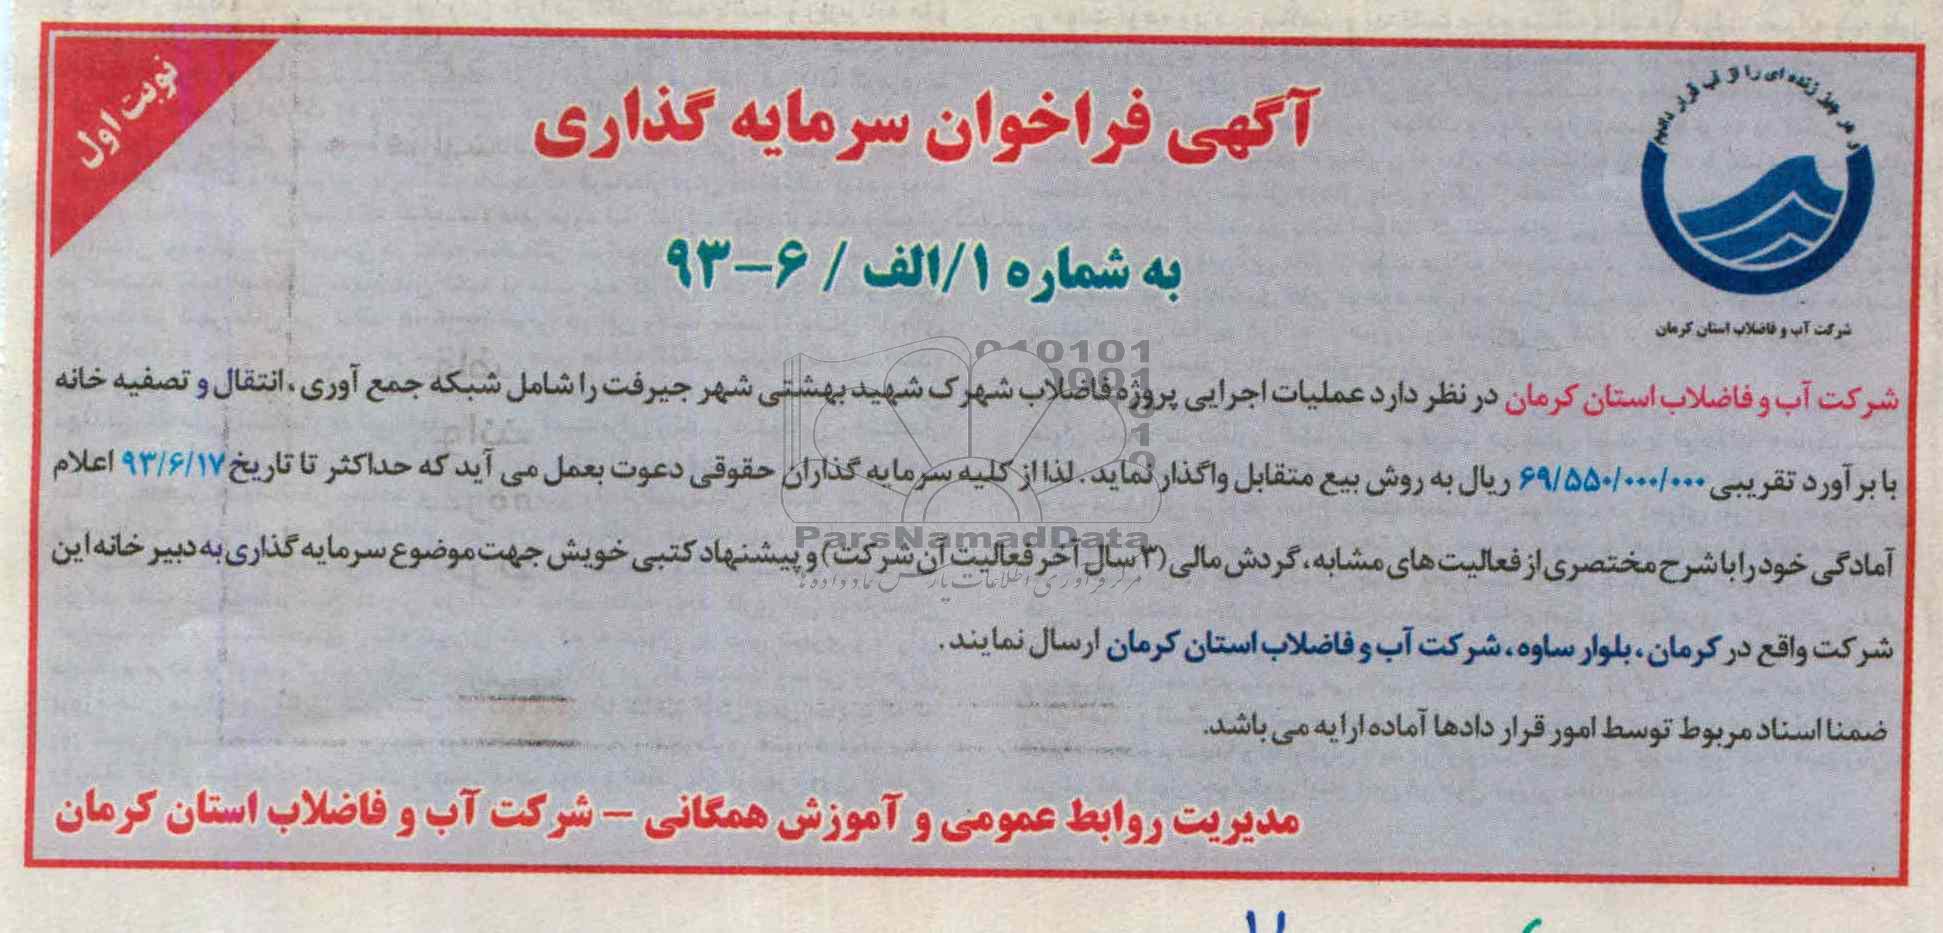 نوبت اول
و هر چیز زنده ای را از آب قرار دادیم
آگهی فراخوان سرمایه گذاری
به شماره ۱/الف / ۶–۹۳
شرکت آب و فاضلاب استان کرمان
شرکت آب و فاضلاب استان کرمان در نظر دارد عملیات اجرایی پروژه فاضلاب شهرک شهید بهشتی شهر جیرفت را شامل شبکه جمع آوری، انتقال و تصفیه خانه
با برآورد تقریبی ۶۹/۵۵۰/۰۰۰/۰۰۰ ریال به روش بیع متقابل واگذار نماید. لذا از کلیه سرمایه گذاران حقوقی دعوت بعمل می آید که حداکثر تا تاریخ ۹۳/۶/۱۷ اعلام
آمادگی خود را با شرح مختصری از فعالیت های مشابه، گردش مالی (۳ سال آخر فعالیت آن شرکت) و پیشنهاد کتبی خویش جهت موضوع سرمایه گذاری به دبیر خانه این
شرکت واقع در کرمان، بلوار ساوه، شرکت آب و فاضلاب استان کرمان ارسال نمایند.
ضمنا اسناد مربوط توسط امور قرار دادها آماده ارایه می باشد.
مدیریت روابط عمومی و آموزش همگانی – شرکت آب و فاضلاب استان کرمان
ParsNamadData
مرکز فرآوری اطلاعات پارس نماد داده ها